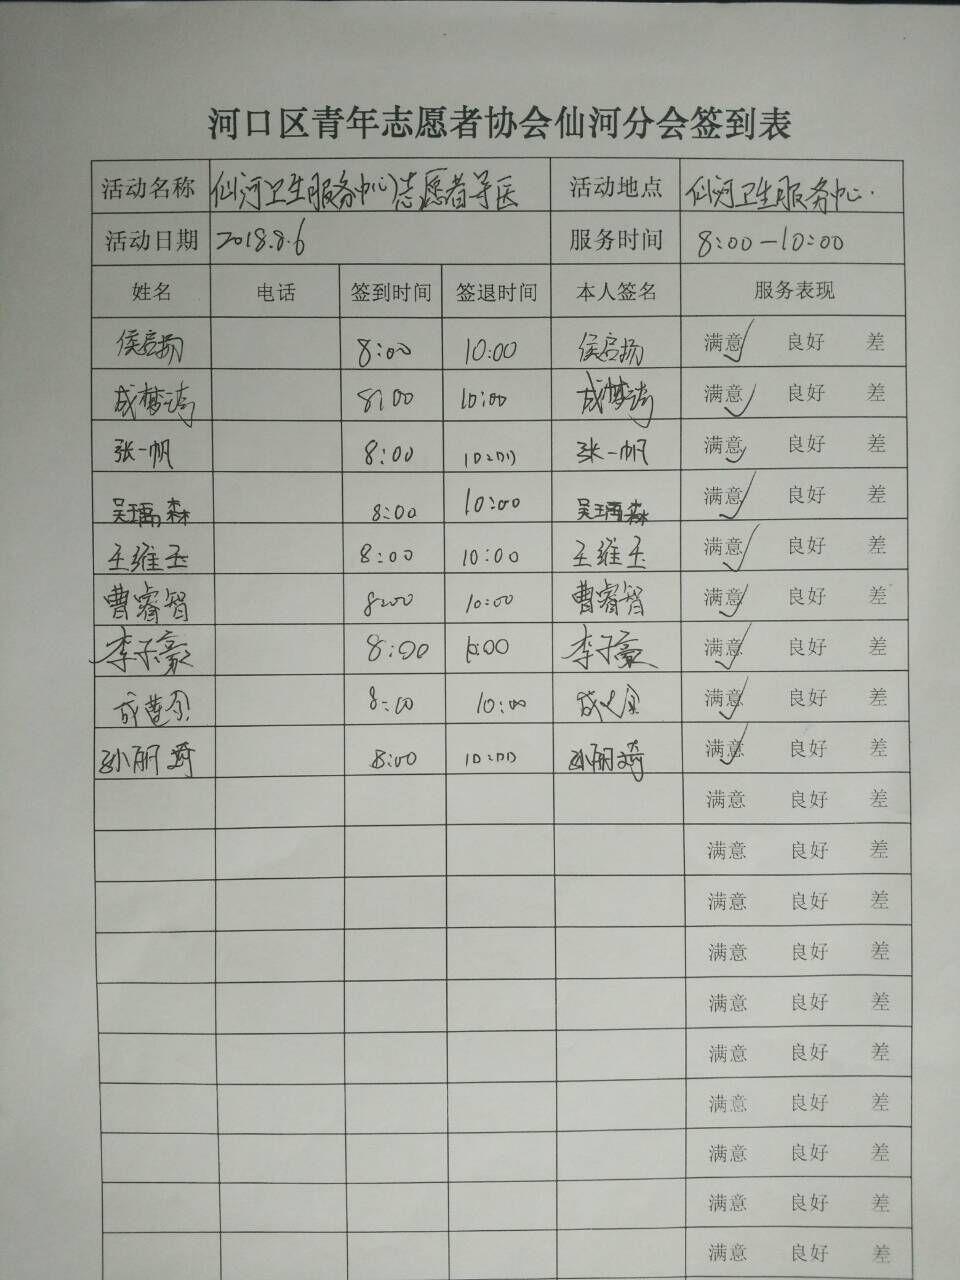 河口区青年志愿者协会仙河分会签到表
活动名称 仙河卫生服务中心志愿者导医 活动地点 仙河卫生服务中心.
活动日期 2018.8.6 服务时间 8:00-10:00
姓名 电话 签到时间 签退时间 本人签名 服务表现
侯启扬 8:00 10:00 侯启扬 满意 良好 差
成梦 8:00 10:00 成梦 满意 良好 差
张一帆 8:00 10:00 张一帆 满意 良好 差
吴瑀森 8:00 10:00 吴瑀森 满意 良好 差
王维玉 8:00 10:00 王维玉 满意 良好 差
曹睿智 8:00 10:00 曹睿智 满意 良好 差
李子豪 8:00 李子豪 满意 良好 差
成 8:00 10:00 成 满意 良好 差
孙丽琦 8:00 10:00 孙丽琦 满意 良好 差
满意 良好 差
满意 良好 差
满意 良好 差
满意 良好 差
满意 良好 差
满意 良好 差
满意 良好 差
满意 良好 差
满意 良好 差
满意 良好 差